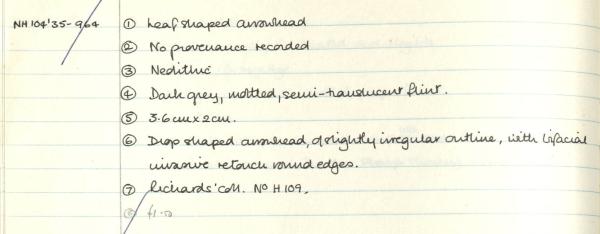 NH 104'35-964
① Leaf shaped arrowhead
② No provenance recorded
③ Neolithic
④ Dark grey, mottled, semi-translucent flint.
⑤ 3.6cm x 2cm.
⑥ Drop shaped arrowhead, of slightly irregular outline, with bifacial
invasive retouch round edges.
⑦ Richards' Coll. Nº H 109.
⑧ £1.50